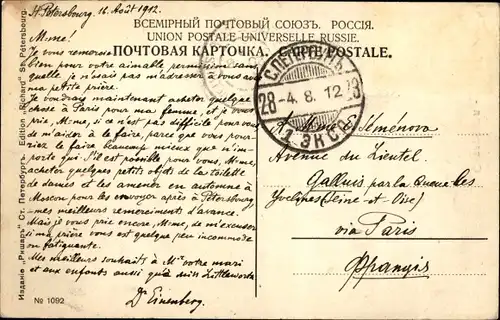 St Petersbourg, 16 Août 1912.
ВСЕМІРНЫЙ ПОЧТОВЫЙ СОЮЗЪ. РОССІЯ.
UNION POSTALE UNIVERSELLE RUSSIE.
ПОЧТОВАЯ КАРТОЧКА. CARTE POSTALE.
M:me!
Je vous remercie
bien pour votre aimable permission sans
quelle je n'osais pas m'adresser à vous avec
ma petite prière.
Je voudrais maintenant acheter quelque
chose à Paris pour ma femme, et vous
prie, M:me, si ce n'est pas difficile pour vous
de m'aider à le faire, parce que vous pour-
riez le faire beaucoup mieux que n'im-
porte qui. S'il est possible pour vous, M:me,
acheter quelques petits objets de la toilette
de dames et les amener en automne à
Moscou pour les envoyer après à Petersbourg
mes meilleurs remerciments d'avance.
Mais je vous prie encore, M:me, de m'excuser
si ma prière vous est quelque peu incommode
ou fatiguante.
Mes meilleurs souhaits à Mr votre mari
et aux enfants aussi qu'à miss
Dr Eisenberg.
28 -4.8.12
M:me Semenova
Avenue du Lieutel
Galluis par la Queue les
Yvelines (Seine et Oise)
via Paris
Франція
Изданіе „Ришаръ" Ст. Петербургъ. Edition „Richard" St. Pétersbourg.
№ 1092